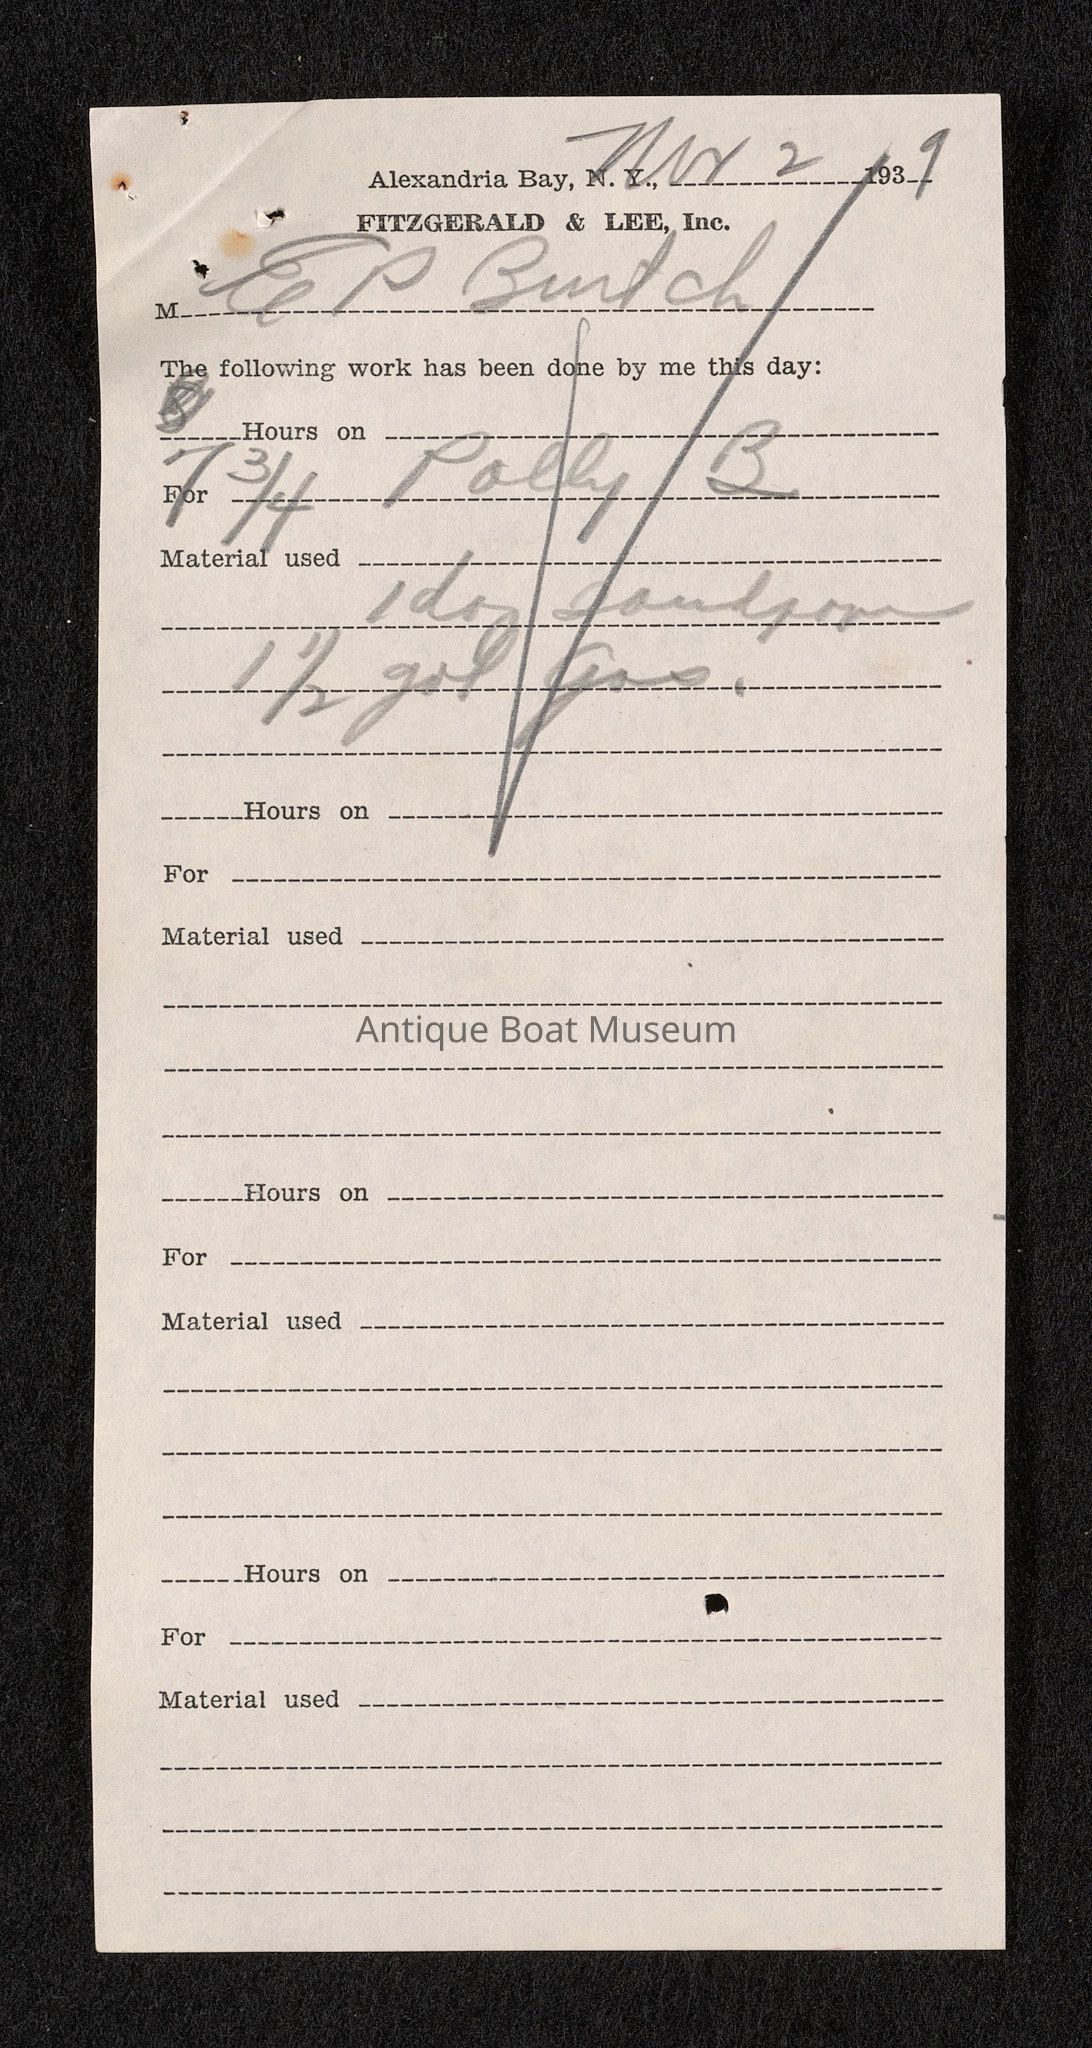 Nov 2
Alexandria Bay, N. Y., 1939
FITZGERALD & LEE, Inc.
M E P Burtch
The following work has been done by me this day:
8 Hours on
7 3/4 Polly B
For
Material used
1 doz sandpaper
1 1/2 gal Gas.
Hours on
For
Material used
Antique Boat Museum
Hours on
For
Material used
Hours on
For
Material used